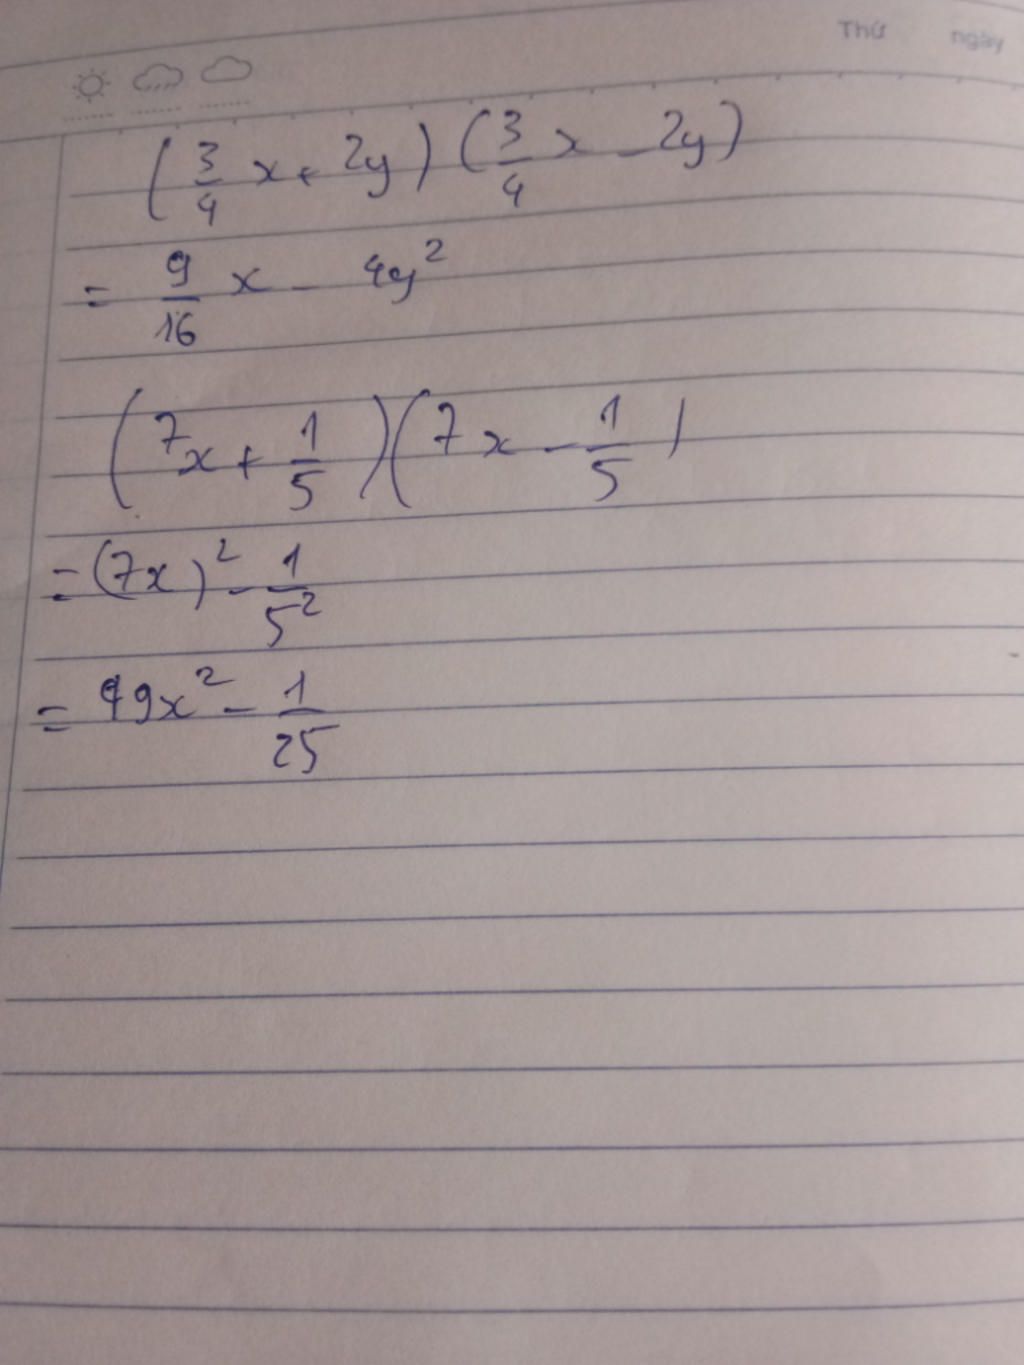 Thứ ngày
(3/4 x + 2y) (3/4 x - 2y)
= 9/16 x - 4y²
(7x + 1/5)(7x - 1/5)
= (7x)² - 1/5²
= 49x² - 1/25